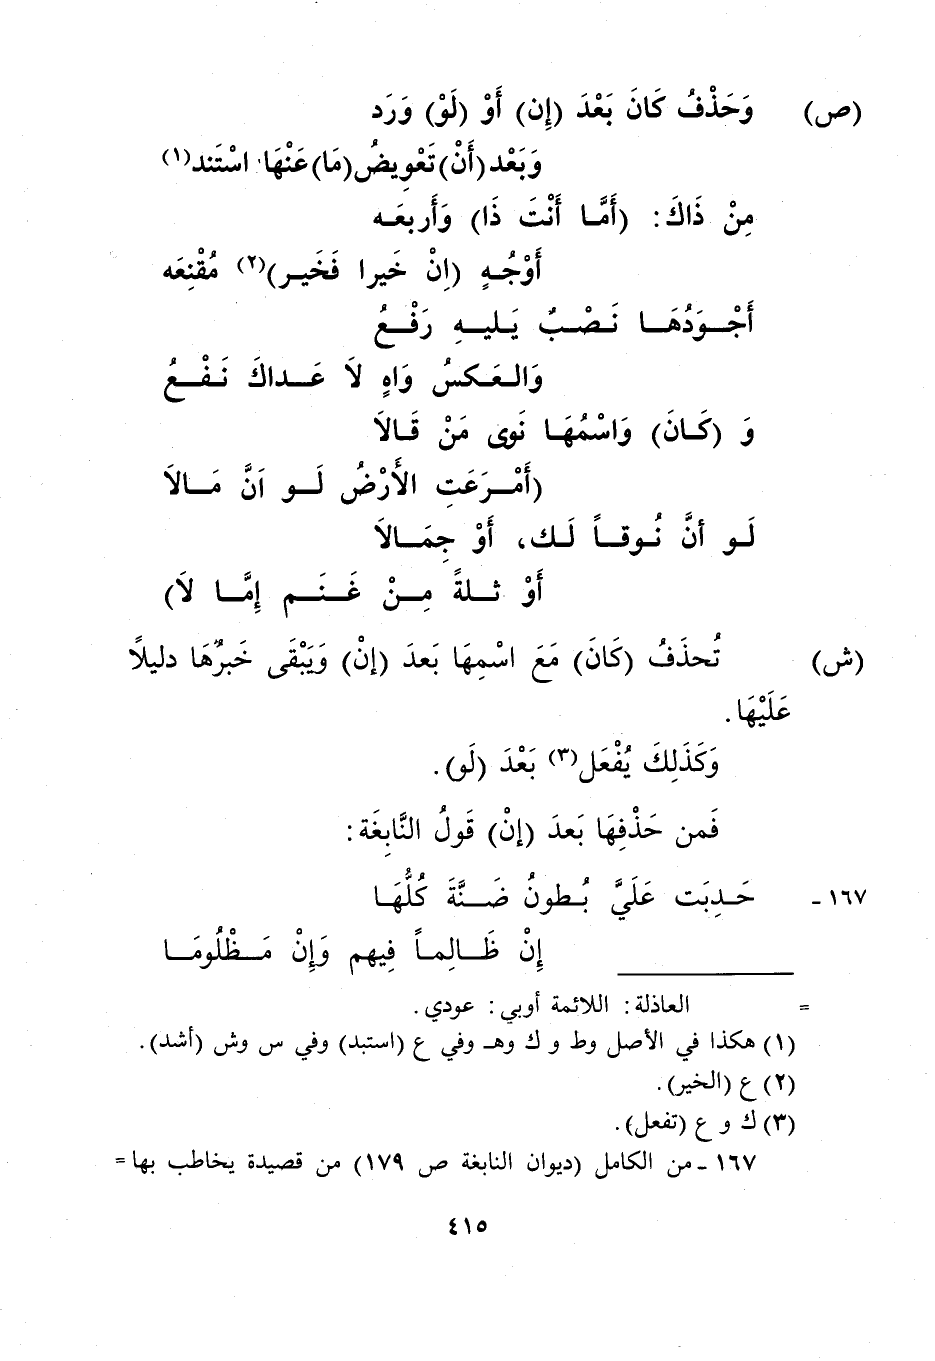 (ص) وَحَذْفُ كَانَ بَعْدَ (إن) أَوْ (لَوْ) وَرَد
وَبَعْد (أَنْ) تَعْويضُ (مَا) عَنْهَا اسْتَند(١)
مِنْ ذَاكَ: (أَمَّا أَنْتَ ذَا) وَأَربعَه
أَوْجُهٍ (اِنْ خَيرا فَخَير)(٢) مُقْنِعَه
أَجْوَدُهَا نَصْبٌ يَليهِ رَفْعُ
وَالعَكسُ وَاهٍ لاَ عَداكَ نَفْعُ
وَ (كَانَ) وَاسْمُهَا نَوى مَنْ قَالاَ
(أَمْرَعَتِ الأَرْضُ لَو اَنَّ مَالاَ
لَو أنَّ نُوقاً لَك، أَوْ جِمَالاَ
أَوْ ثلةً مِنْ غَنَمٍ إِمَّا لاَ)
(ش) تُحذَفُ (كَانَ) مَعَ اسْمِهَا بَعدَ (إنْ) وَيَبْقَى خَبرُهَا دليلاً
عَلَيْهَا.
وَكَذَلِكَ يُفْعَل(٣) بَعْدَ (لَو).
فَمن حَذْفِهَا بَعدَ (إنْ) قَولُ النَّابِغَة:
١٦٧ - حَدِبَت عَلَيَّ بُطونُ ضَنَّةَ كُلُّهَا
إِنْ ظَالِماً فِيهم وَإِنْ مَظْلُومَا
= العاذلة: اللائمة أوبي: عودي.
(١) هكذا في الأصل وط و ك وهـ وفي ع (استبد) وفي س وش (أشد).
(٢) ع (الخير).
(٣) ك و ع (تفعل).
١٦٧ - من الكامل (ديوان النابغة ص ١٧٩) من قصيدة يخاطب بها =
٤١٥